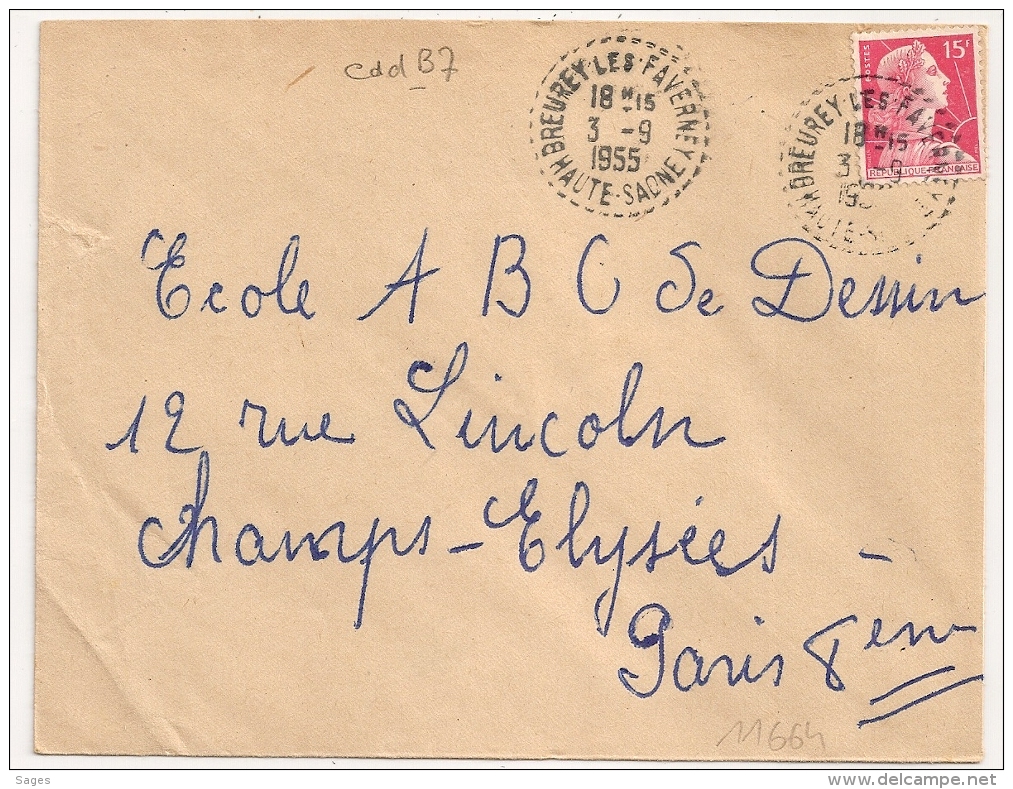 cdd B7
BREUREY-LES-FAVERNEY
18 H -15
3 -9
1955
HAUTE-SAONE
POSTES
15F
REPUBLIQUE-FRANÇAISE
BREUREY-LES-FAVERNEY
18 H -15
3 -9
Ecole A B C de Dessin
12 rue Lincoln
Champs-Elysées -
Paris 8eme
11664
Sages
www.delcampe.net